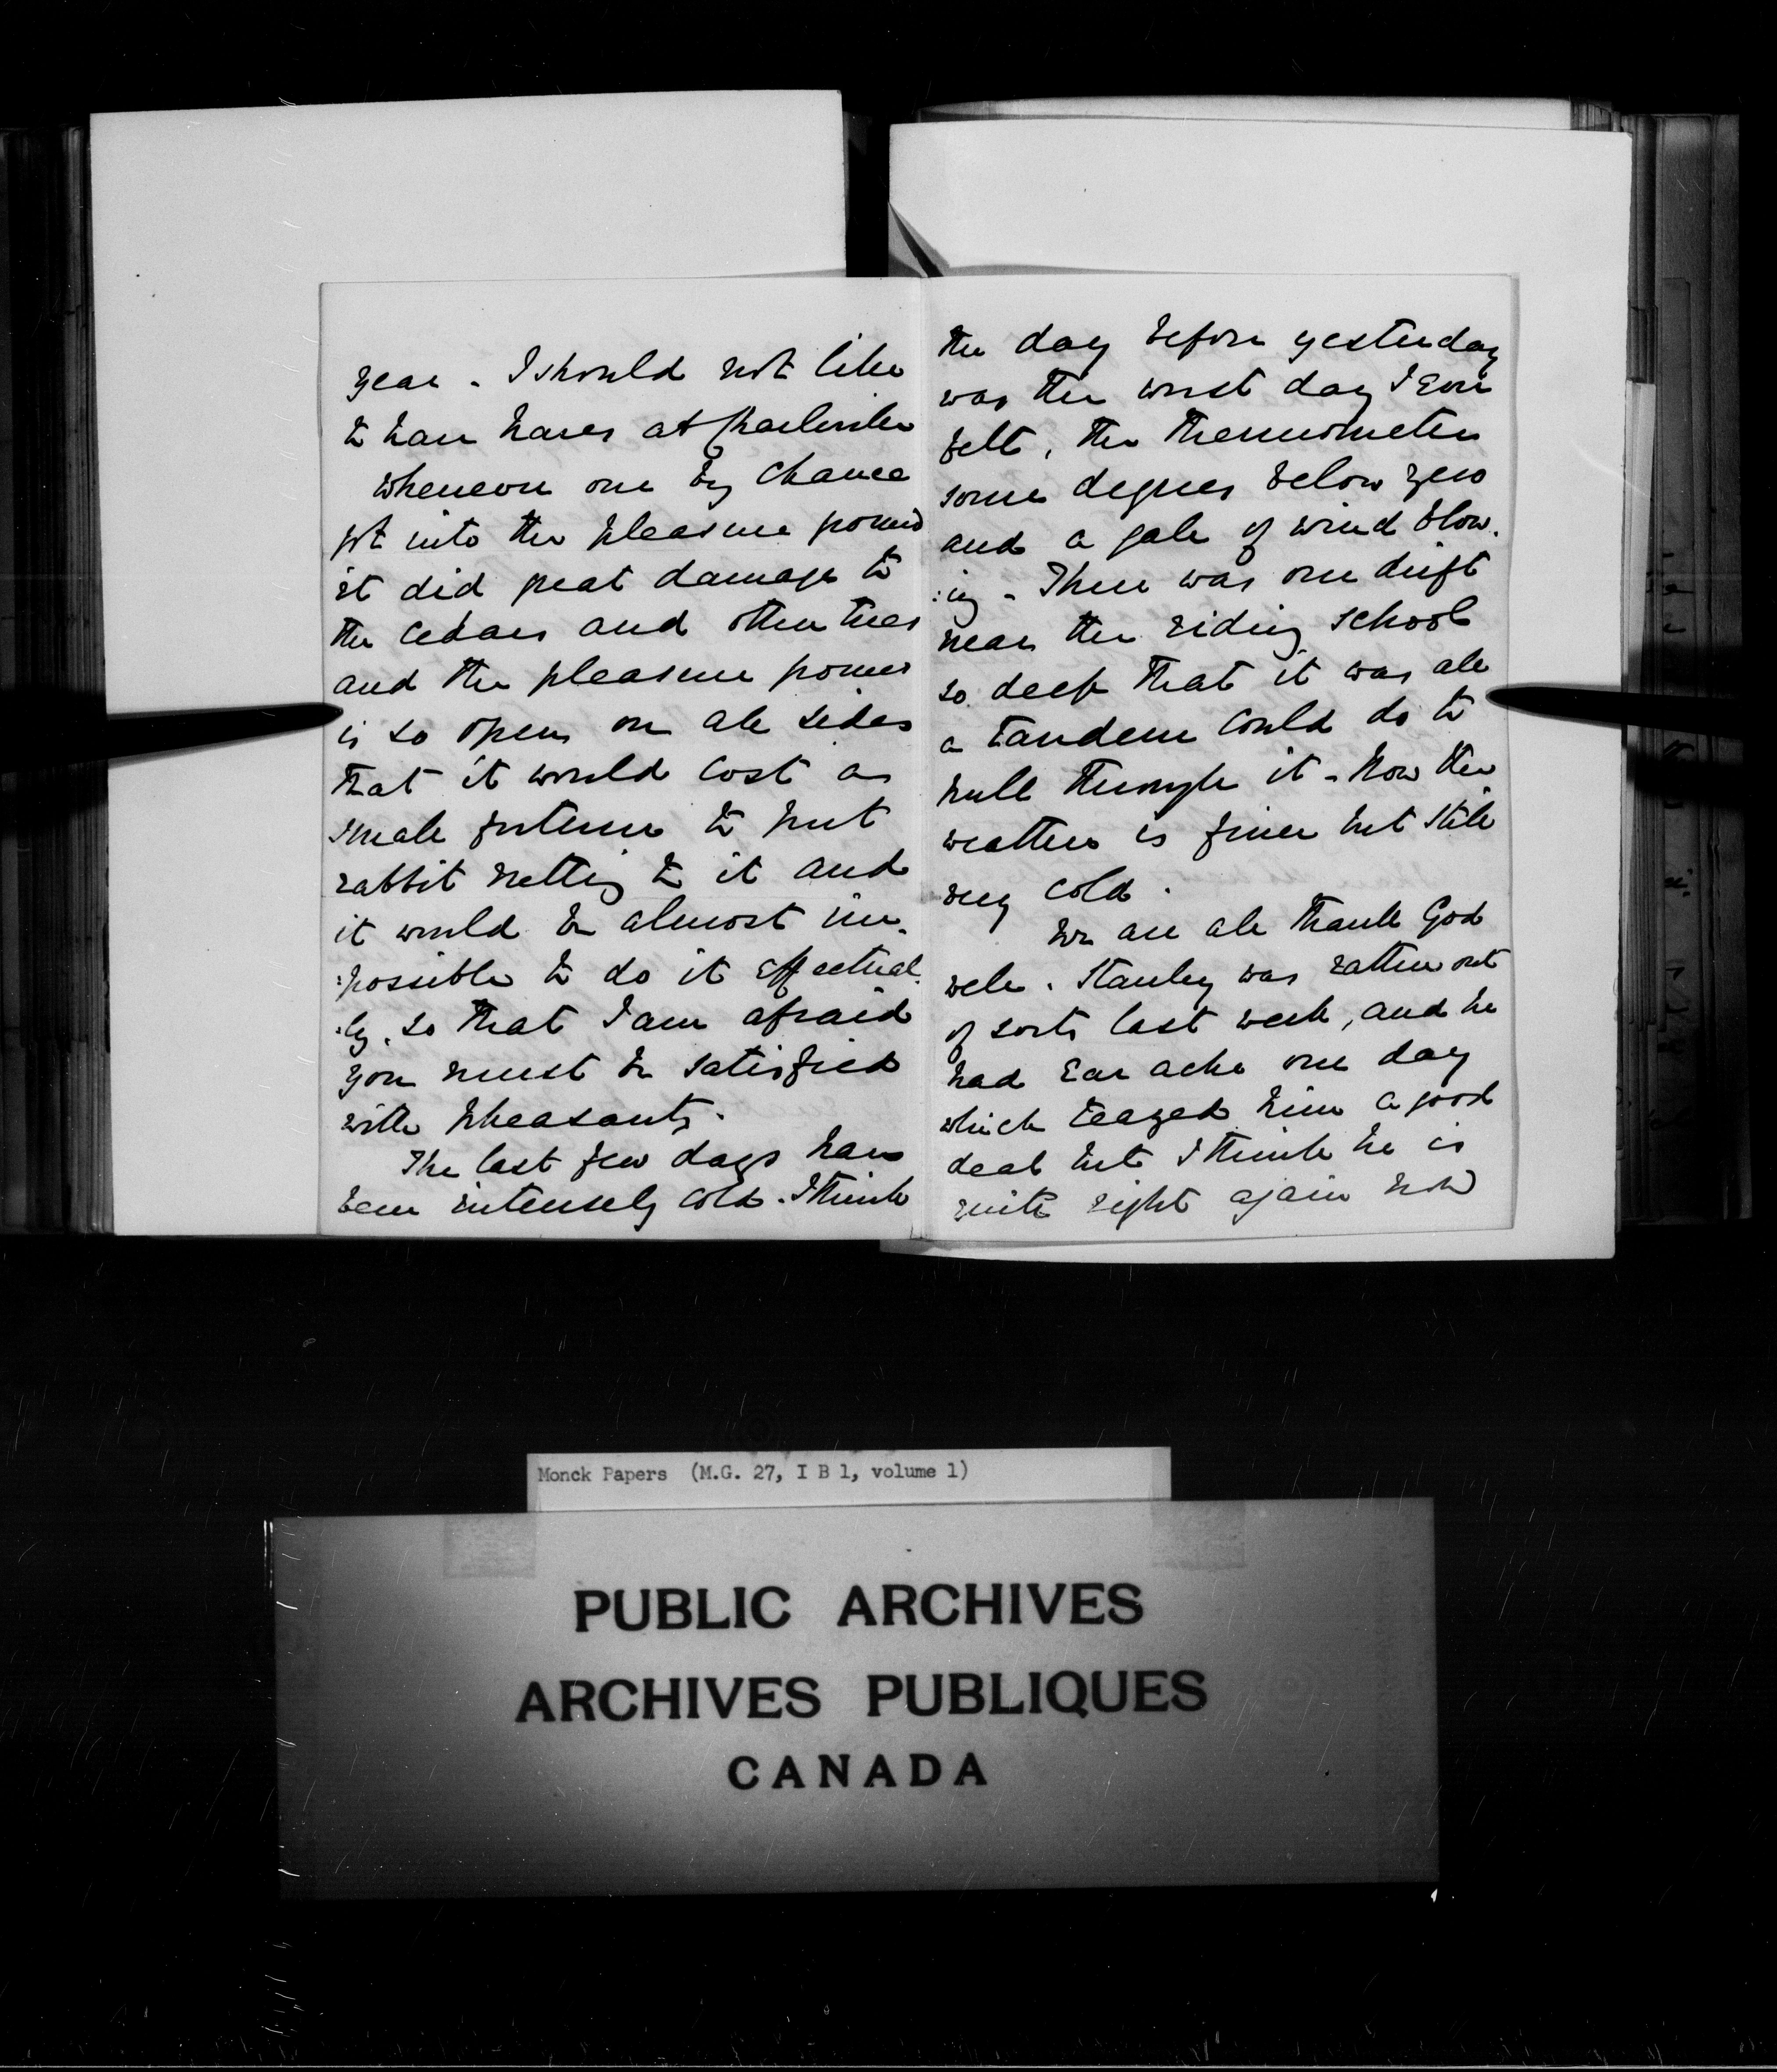 year - I should not like
to have hares at Charleville
whenever one by chance
got into the pleasure ground
it did great damage to
the cedars and other trees
and the pleasure ground
is so open on all sides
that it would cost a
small fortune to put
rabbit netting to it and
it would be almost im-
:possible to do it effectual-
:ly, so that I am afraid
you must be satisfied
with pheasants.
The last few days have
been intensely cold. I think
the day before yesterday
was the worst day I ever
felt, the thermometer
some degrees below zero
and a gale of wind blow-
:ing - There was one drift
near the riding school
so deep that it was all
a tandem could do to
pull through it - Now the
weather is finer but still
very cold.
We are all thank God
well. Stanley was rather out
of sorts last week, and he
had ear ache one day
which teazed him a good
deal but I think he is
quite right again now
Monck Papers (M.G. 27, I B 1, volume 1)
PUBLIC ARCHIVES
ARCHIVES PUBLIQUES
CANADA